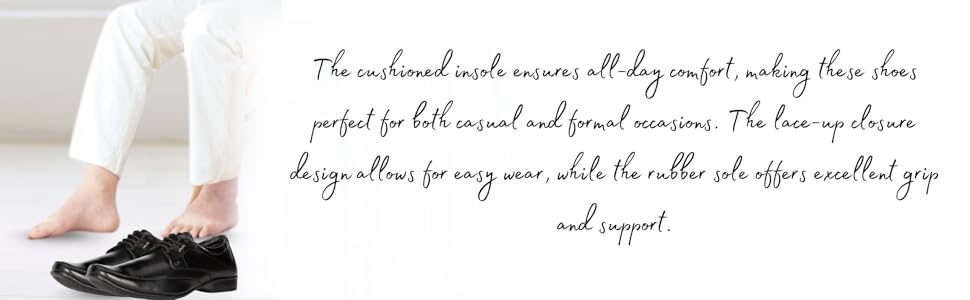 The cushioned insole ensures all-day comfort, making these shoes
perfect for both casual and formal occasions. The lace-up closure
design allows for easy wear, while the rubber sole offers excellent grip
and support.